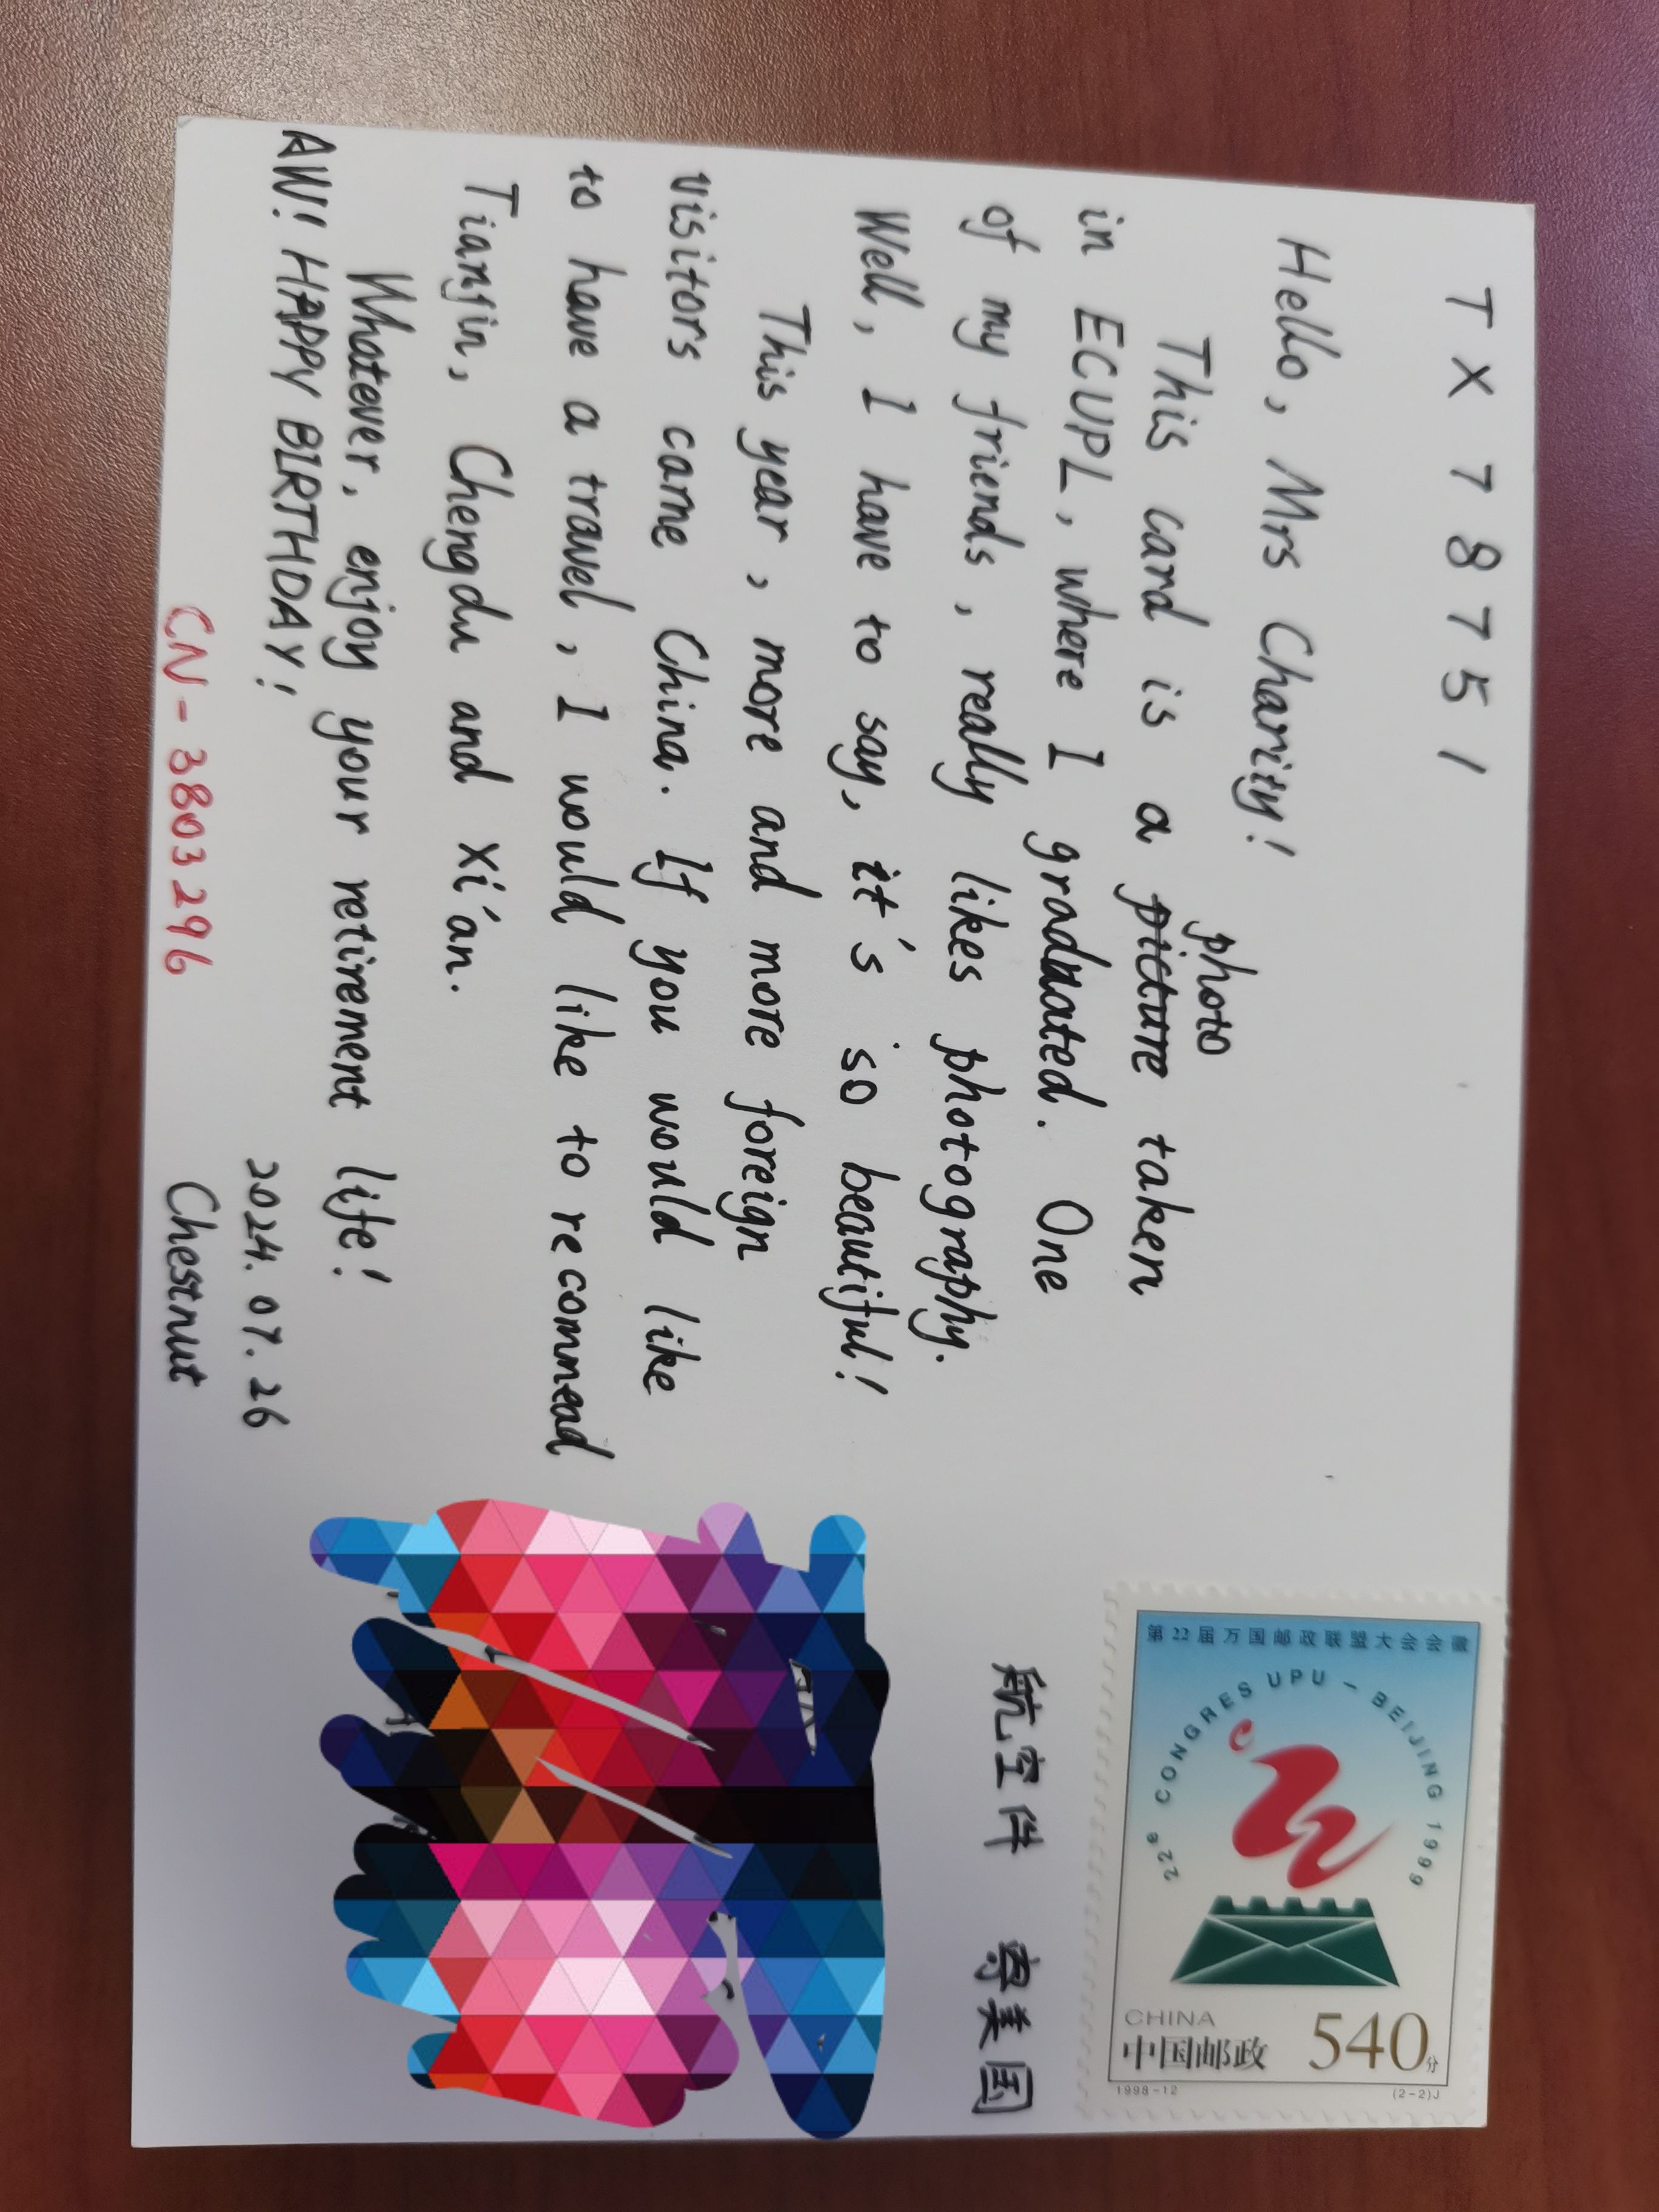 TX 78751
Hello, Mrs Charity!
photo
This card is a picture taken
in ECUPL, where I graduated. One
of my friends, really likes photography.
Well, I have to say, it's so beautiful!
This year, more and more foreign
visitors came China. If you would like
to have a travel, I would like to recommead
Tianjin, Chengdu and Xi'an.
Whatever, enjoy your retirement life!
AW! HAPPY BIRTHDAY!
2024. 07. 26
CN-3803296
Chestnut
第22届万国邮政联盟大会会徽
22e CONGRES UPU - BEIJING 1999
CHINA
中国邮政
540分
1998-12
(2-2)J
航空件 寄美国